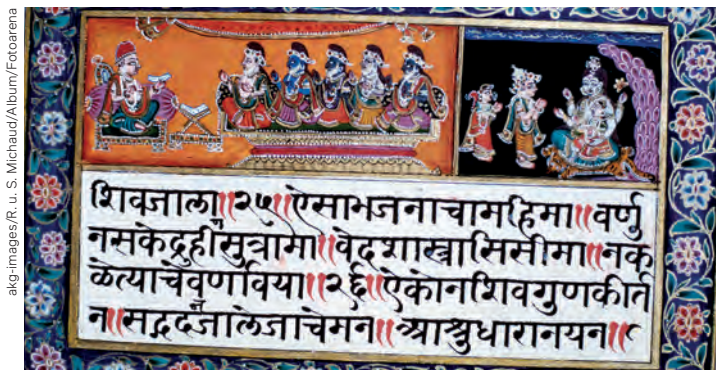 akg-images/R. u. S. Michaud/Album/Fotoarena
शिवजाला॥२५॥ऐसाभजनाचामहिमा॥वर्णु
नसके॥वेदशास्त्रासिसीमा॥नक
ळेत्याचे॥२६॥ऐकोनशिवगुणकीर्त
न॥सद्गदजालेजाचेमन॥आश्रुधारानयन॥